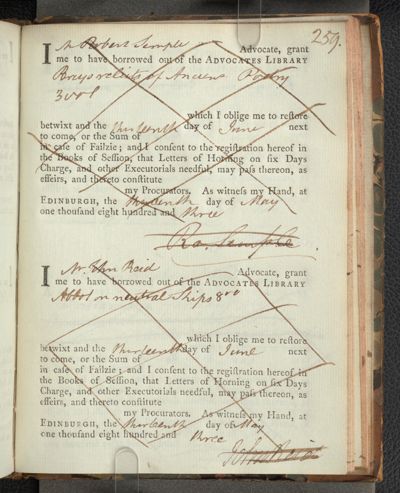 259.
I Mr Robert Semple Advocate, grant
me to have borrowed out of the ADVOCATES LIBRARY
relicts of Ancient Poetry
3 vol
which I oblige me to reſtore
betwixt and the thirteenth day of June next
to come, or the Sum of
in caſe of Failzie; and I conſent to the regiſtration hereof in
the Books of Seſſion, that Letters of Horning on ſix Days
Charge, and other Executorials needful, may paſs thereon, as
effeirs, and thereto conſtitute
my Procurators. As witneſs my Hand, at
EDINBURGH, the thirteenth day of May
one thouſand eight hundred and three
Ro. Semple
I Mr. John Reid Advocate, grant
me to have borrowed out of the ADVOCATES LIBRARY
on neutral Ships 8vo
which I oblige me to reſtore
betwixt and the thirteenth day of June next
to come, or the Sum of
in caſe of Failzie; and I conſent to the regiſtration hereof in
the Books of Seſſion, that Letters of Horning on ſix Days
Charge, and other Executorials needful, may paſs thereon, as
effeirs, and thereto conſtitute
my Procurators. As witneſs my Hand, at
EDINBURGH, the thirteenth day of May
one thouſand eight hundred and three
John Reid